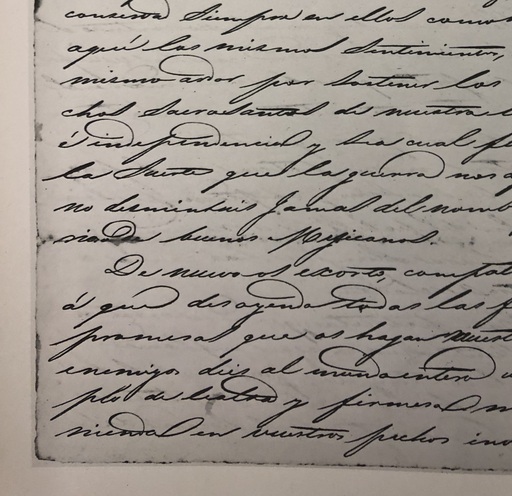 conserva siempre en ellos como
aquí los mismos sentimientos,
mismo ardor por sostener los
chos sacrosantos de nuestra
é independencia y sea cual
la suerte que la guerra nos
no desmintais jamas del nomb
buenos Mejicanos.
De nuevo os exorto, compat
á que desoyendo todas las f
promesas que os hagan nuest
enemigos deis al mundo entero
plo de lealtad y firmeza
niendo en vuestros pechos